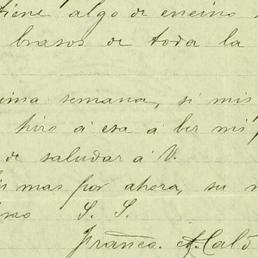 tiene algo de encino
brasos de toda la
ima semana, si mis
hiro á esa á ber mi
de saludar á V.
mas por ahora, su
imo S. S.
Franco. A. Cal